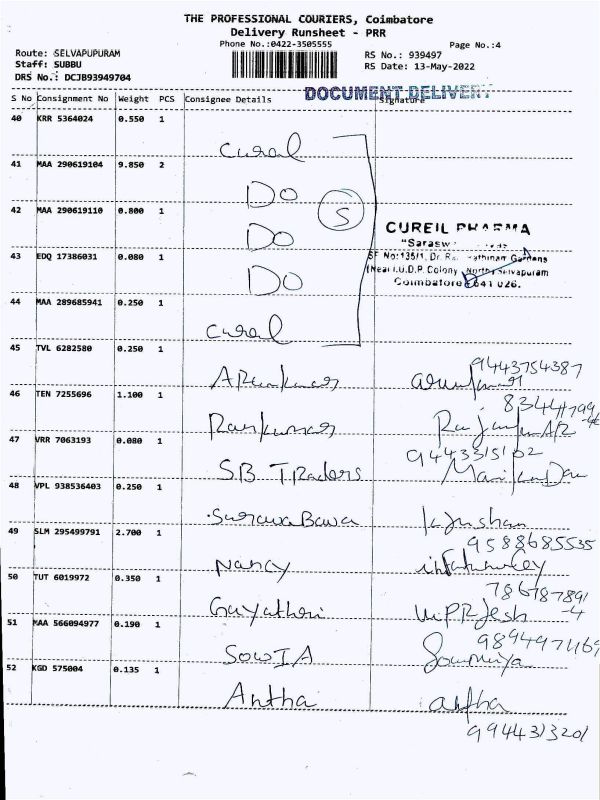 THE PROFESSIONAL COURIERS, Coimbatore
Delivery Runsheet - PRR
Phone No.:0422-3505555
Page No.:4
Route: SELVAPUPURAM
Staff: SUBBU
DRS No.: DCJB93949704
RS No.: 939497
RS Date: 13-May-2022
DOCUMENT DELIVERY
S No Consignment No Weight PCS Consignee Details Signature
40 KRR 5364024 0.550 1
Cural
41 MAA 290619104 9.850 2
DO
S
42 MAA 290619110 0.800 1
DO
CUREIL PHARMA
"Sarasw
43 EDQ 17386031 0.080 1
SF No:135/1, Dr. Ra athinam Gardens
DO
(Near I.U.D.P. Colony North Selvapuram
Coimbatore 641 026.
44 MAA 289685941 0.250 1
Cural
45 TVL 6282580 0.250 1
9443754387
Arunkumar arunkumar
46 TEN 7255696 1.100 1
Ramkumar
47 VRR 7063193 0.080 1
SB Traders
48 VPL 938536403 0.250 1
SarawaBawa
49 SLM 295499791 2.700 1
9588685535
Nancy
50 TUT 6019972 0.350 1
786787891
-4
Gayatheri
51 MAA 566094977 0.190 1
SOWIA Sowmiya
52 KGD 575004 0.135 1
Antha antha
9944313201